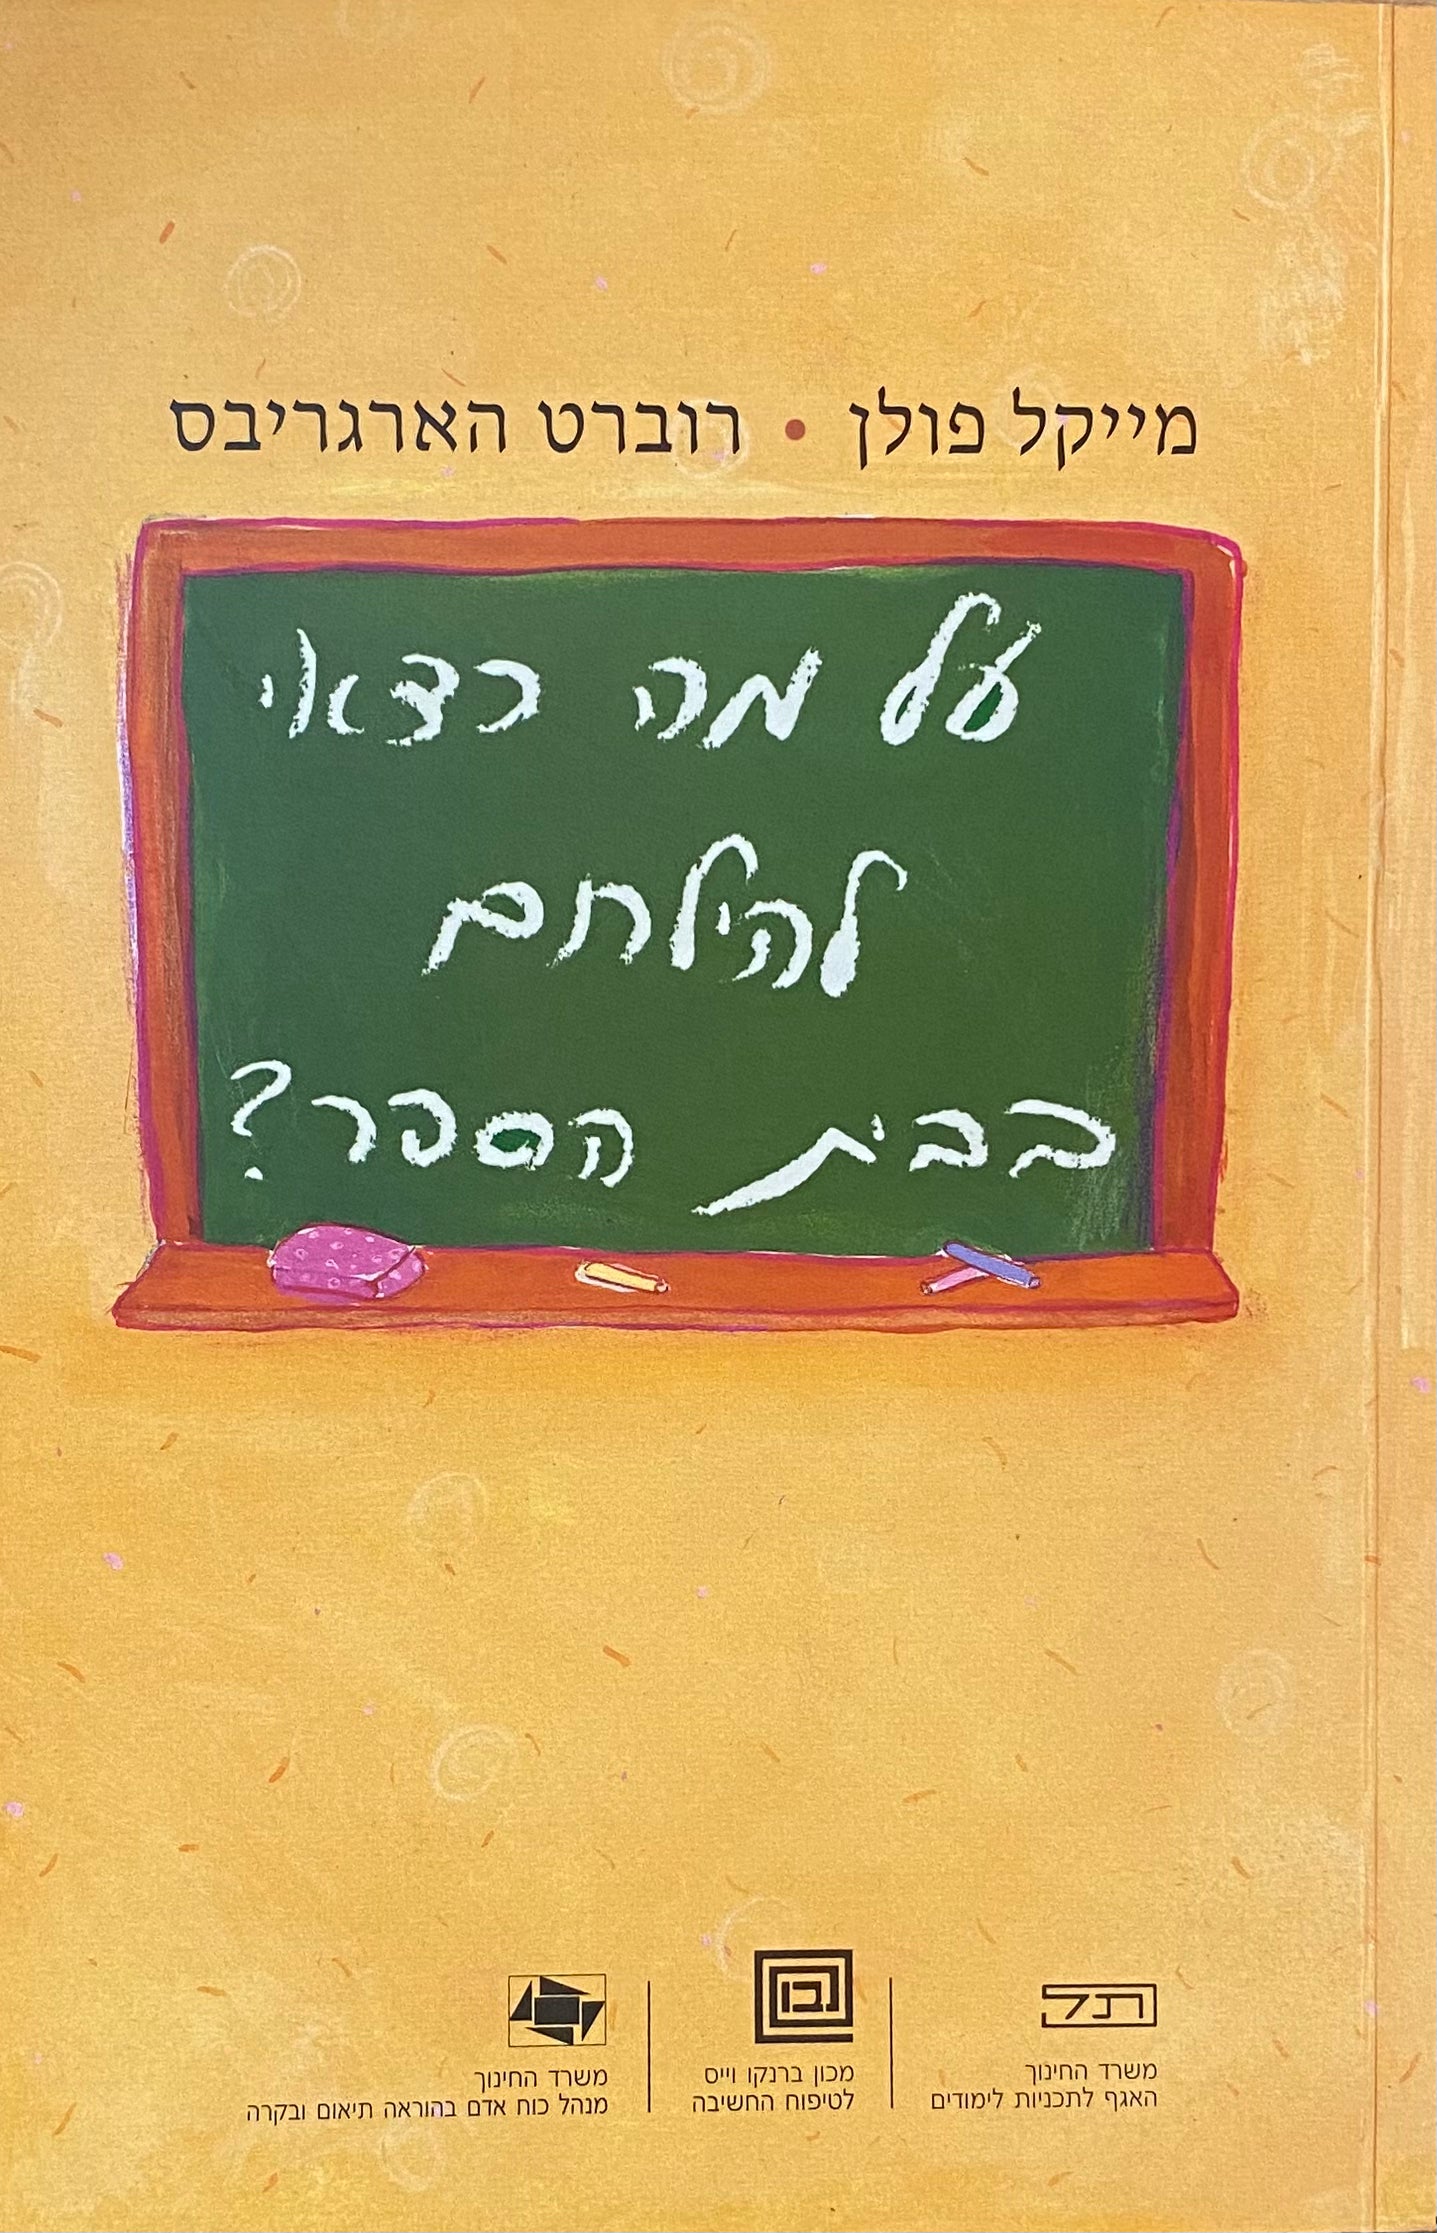 מייקל פולן • רוברט הארגריבס
על מה כדאי
להילחם
בבית הספר?
תל
משרד החינוך
האגף לתכניות לימודים
נבו
מכון ברנקו וייס
לטיפוח החשיבה
משרד החינוך
מנהל כוח אדם בהוראה תיאום ובקרה